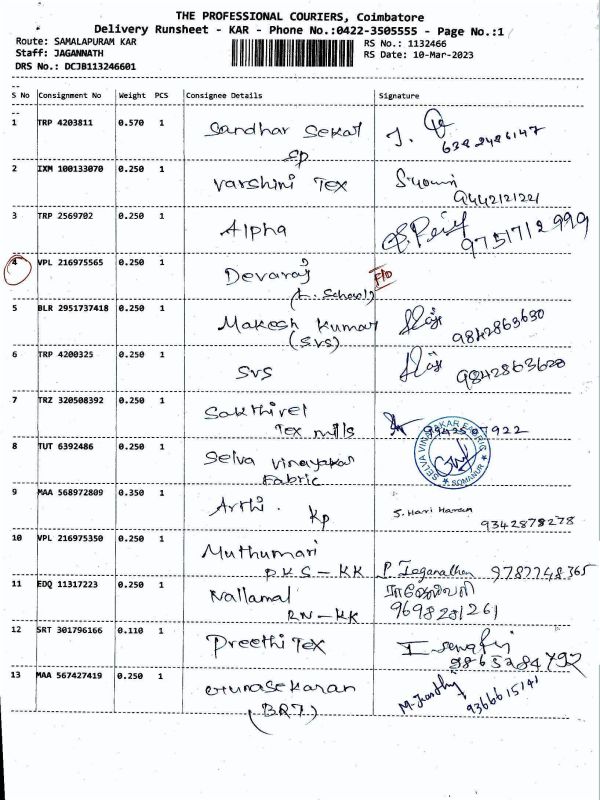 THE PROFESSIONAL COURIERS, Coimbatore
Delivery Runsheet - KAR - Phone No.:0422-3505555 - Page No.:1
Route: SAMALAPURAM KAR
RS No.: 1132466
Staff: JAGANNATH
RS Date: 10-Mar-2023
DRS No.: DCJB113246601
S No Consignment No Weight PCS Consignee Details Signature
1 TRP 4203811 0.570 1 Sandhar Sekar
SP
2 IXM 100133070 0.250 1 Varshini Tex
9442121221
3 TRP 2569702 0.250 1 Alpha 9751712999
4 VPL 216975565 0.250 1 Devaraj F/D
(L. School)
5 BLR 2951737418 0.250 1 Makesh Kumar
(SVS) 9842863630
6 TRP 4200325 0.250 1 SVS 9842863620
7 TRZ 320508392 0.250 1 Sakthivel
Tex mills
8 TUT 6392486 0.250 1 Selva Vinayakar
Fabric
SELVA VINAYAKAR FABRIC * SOMANUR *
9 MAA 568972809 0.350 1 Arthi. Kp S. Hari Haran
9342878278
10 VPL 216975350 0.250 1 Muthumari
P.K.S - KK P. Jeganathan 9787748365
11 EDQ 11317223 0.250 1 Nallamal
RN - KK 9698281261
12 SRT 301796166 0.110 1 Preethi Tex
9865284792
13 MAA 567427419 0.250 1 Gunasekaran
(BRT) 9366615141